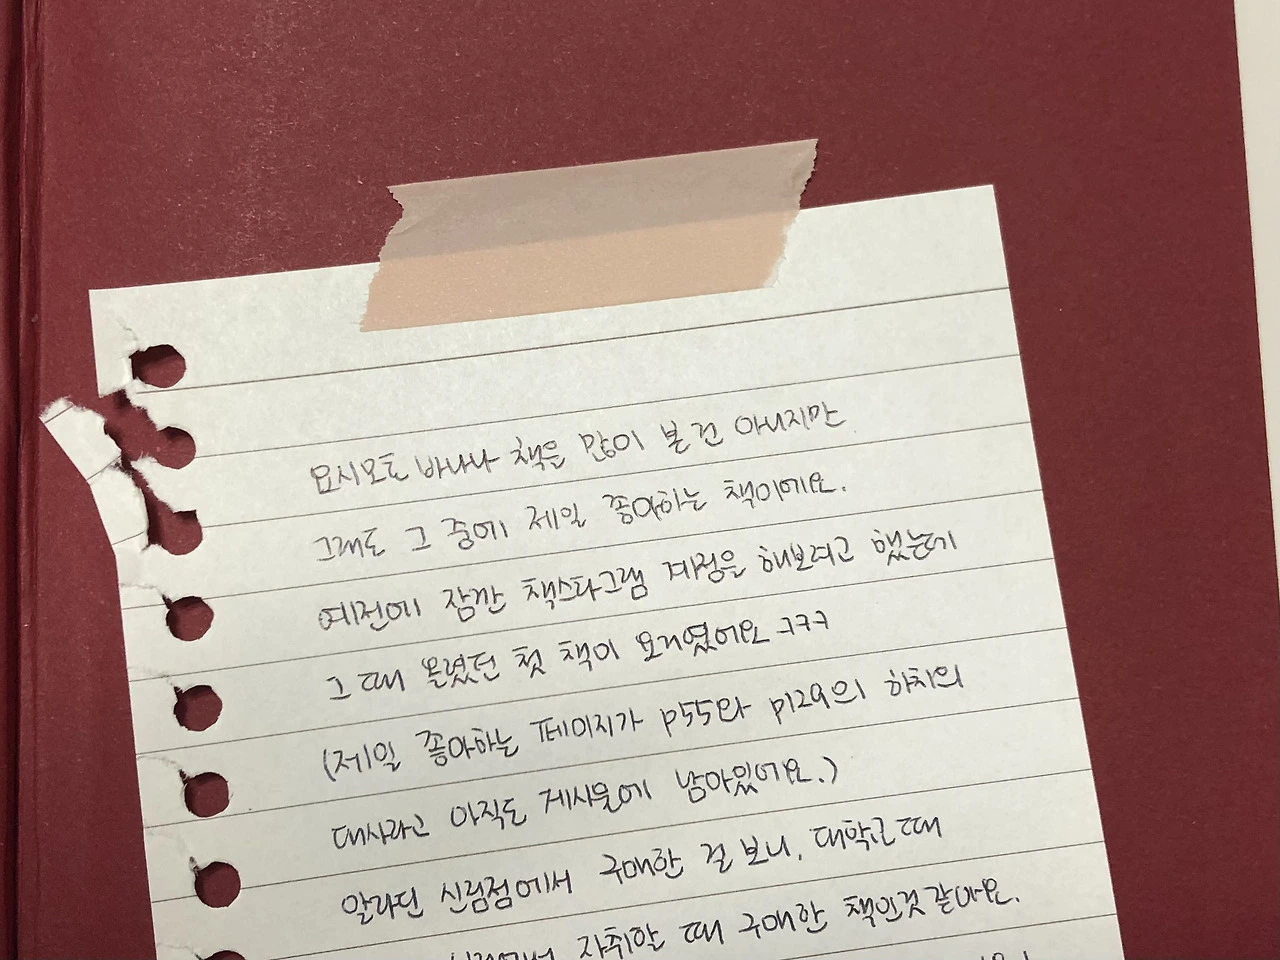 요시모토 바나나 책을 많이 본 건 아니지만
그래도 그 중에 제일 좋아하는 책이에요.
예전에 잠깐 책스타그램 계정을 해보려고 했는데
그 때 올렸던 첫 책이 요거였어요 ㅋㅋㅋ
(제일 좋아하는 페이지가 p55와 p129의 하치의
대사라고 아직도 게시물에 남아있어요.)
알라딘 신림점에서 구매한 걸 보니, 대학교 때
자취할 때 구매한 책인것 같아요.